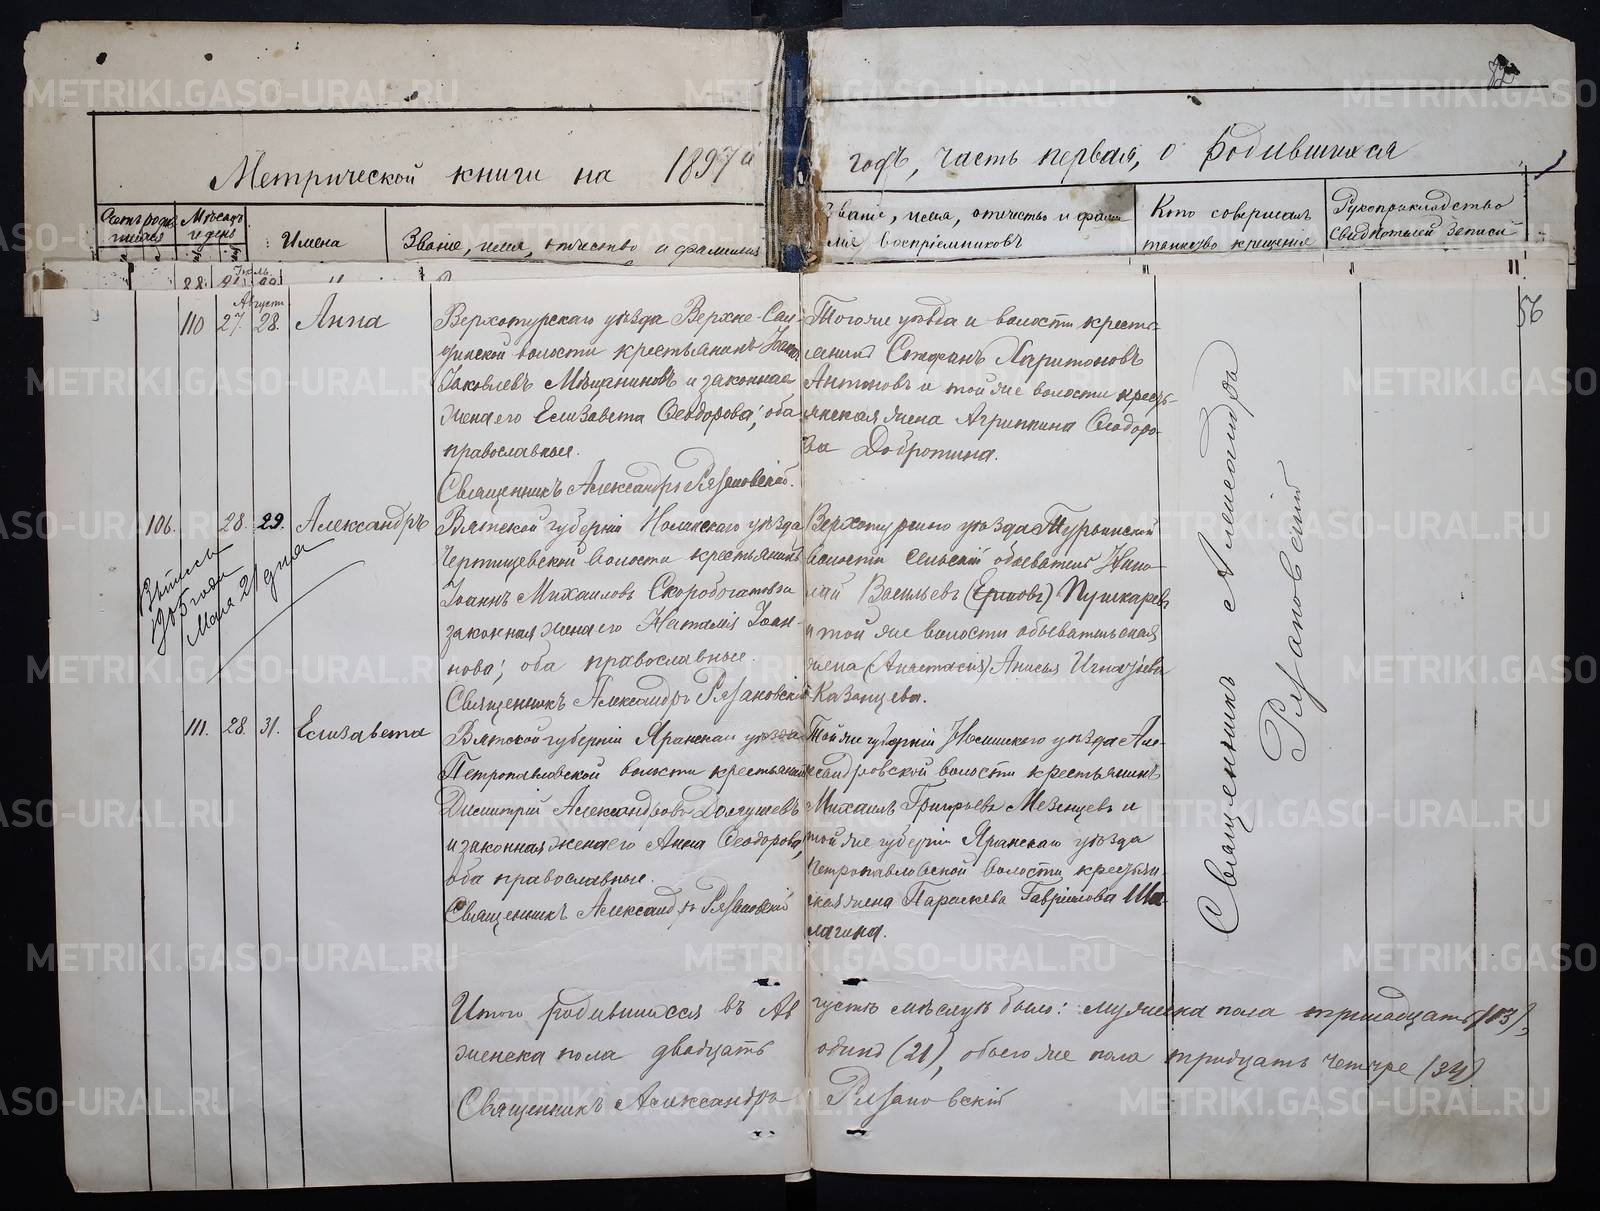 Метрической книги на 1897й годъ, часть первая, о родившихся
Счетъ родив
шихся
Мѣсяцъ
и день
Имена
Званіе, имя, отчество и фамилия
Званіе, имя, отчество и фами
лія воспріемниковъ
Кто совершалъ
таинство крещенія
Рукоприкладство
свидѣтелей записи
Іюль
56
Августъ
110 27. 28. Анна
Верхотурскаго уѣзда Верхне-Сал-
динской волости крестьянинъ Іоаннъ
Іаковлевъ Мѣщаниновъ и законная
жена его Елизавета Ѳеодорова; оба
православные.
Священникъ Александръ Рязановскій.
Тогоже уѣзда и волости кресть-
янинъ Стефанъ Харитоновъ
Антоновъ и той же волости кресть-
янская жена Агриппина Ѳеодоро-
ва Добротина.
106. 28. 29. Александръ
Выпись
205 года
Мая 21 дня
Вятской губерніи Нолинскаго уѣзда
волости крестьянинъ
Іоаннъ Михаиловъ Скоробогатовъ и
законная жена его Наталія Іоан-
нова; оба православные.
Священникъ Александръ Рязановскій
Верхотурскаго уѣзда Турьинской
волости сельскій обыватель Нико-
лай Васильевъ (Ершовъ) Пушкаревъ
и той же волости обывательская
жена (Анастасія) Анисья Игнатьева
Казанцева.
111. 28. 31. Елизавета
Вятской губерніи Яранскаго уѣзда
Петропавловской волости крестьянинъ
Димитрій Александровъ Долгушевъ
и законная жена его Анна Ѳеодорова,
оба православные.
Священникъ Александръ Рязановскій
Той же губерніи Нолинскаго уѣзда Але-
ксандровской волости крестьянинъ
Михаилъ Григорьевъ Мезенцевъ и
той же губерніи Яранскаго уѣзда
Петропавловской волости крестьян-
ская жена Параскева Гавріилова Ша
лагина.
Священникъ Александръ
Рязановскій
Итого родившихся въ Августѣ мѣсяцѣ было: мужеска пола тринадцать (13),
женска пола двадцать одинъ (21), обоего же пола тридцать четыре (34)
Священникъ Александръ Рязановскій
METRIKI.GASO-URAL.RU